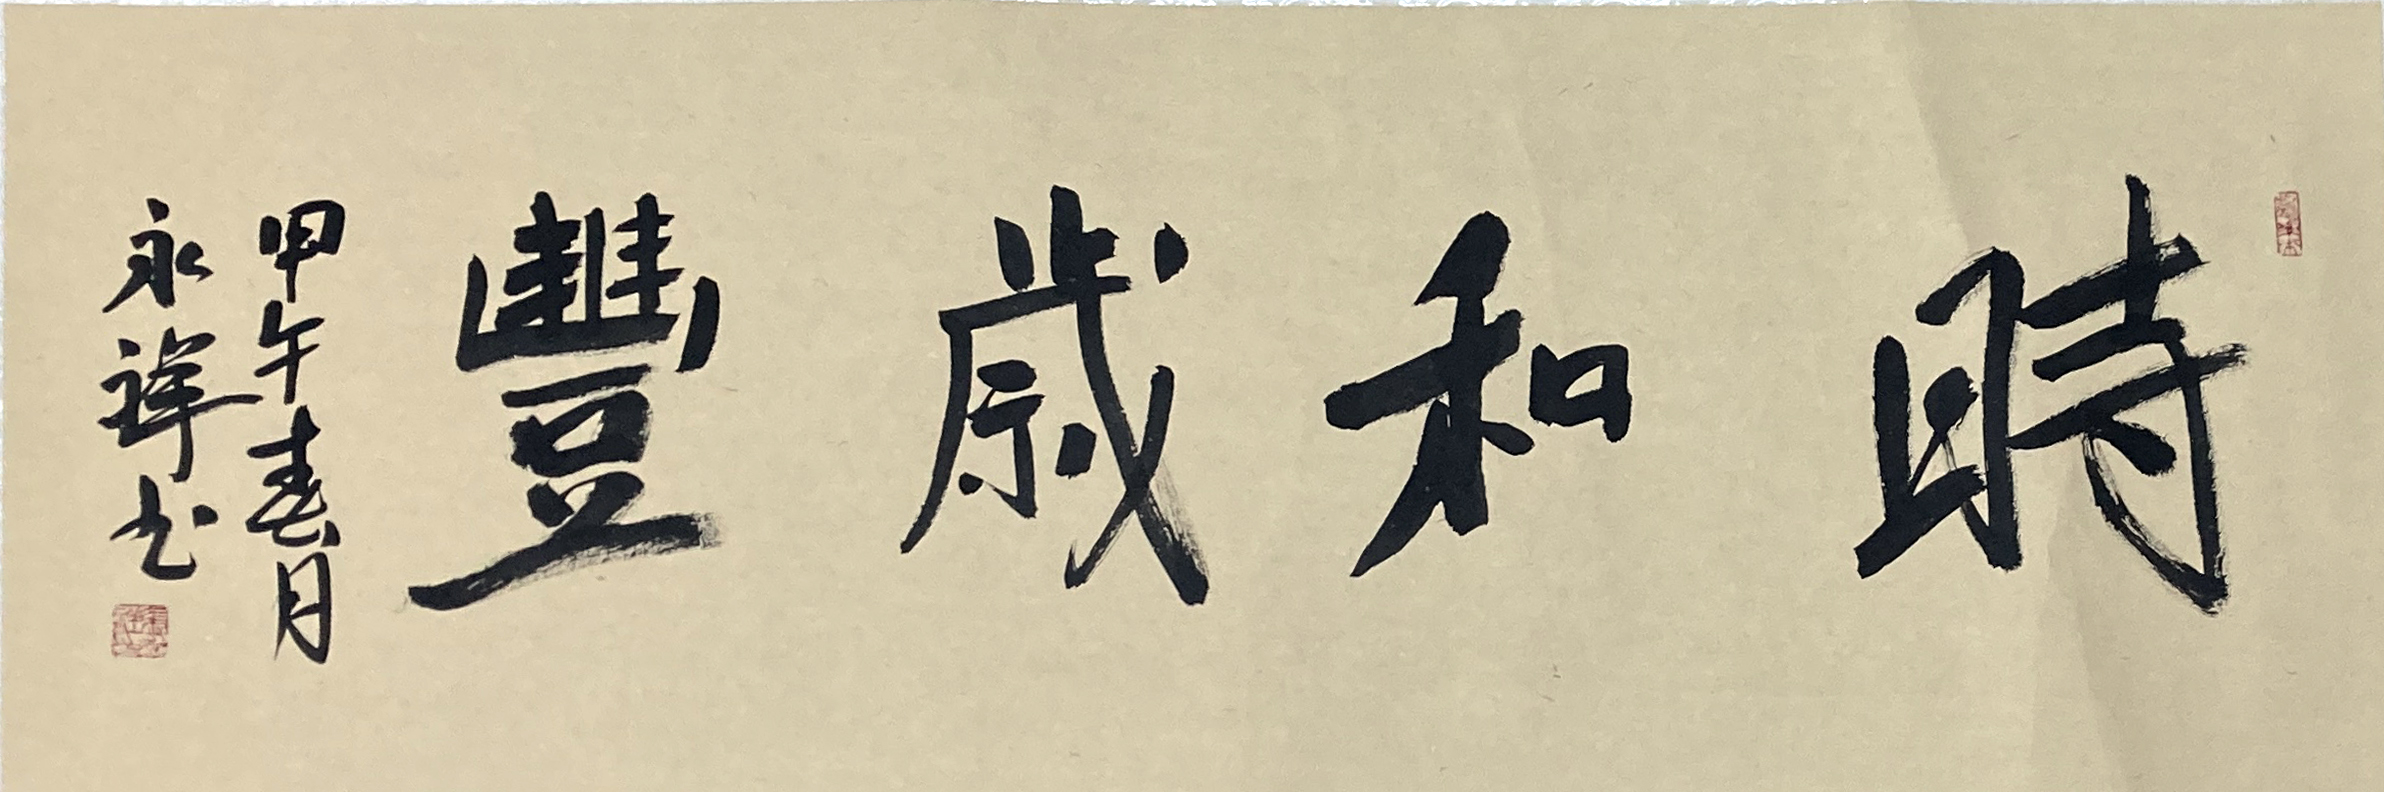 時和歲豐
甲午春月
永譁书